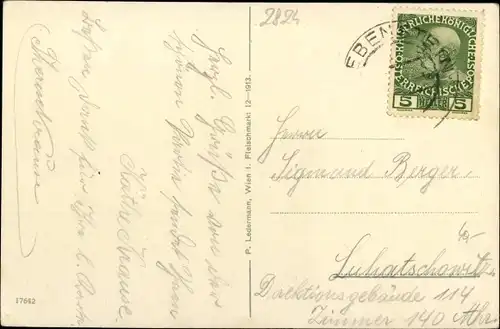 2824
EBEN
KAISERLICHE KÖNIGLICHE
ÖSTERREICHISCHE
5 HELLER 5
Herrn
Sigmund Berger
Luhatschowitz
Direktionsgebäude 114
Zimmer 140
Herzl. Grüße von
schönen sendet Ihnen
Käthe Krause.
Besten Dank für Ihre l. Karte
P. Ledermann, Wien I. Fleischmarkt 12-1913.
17642